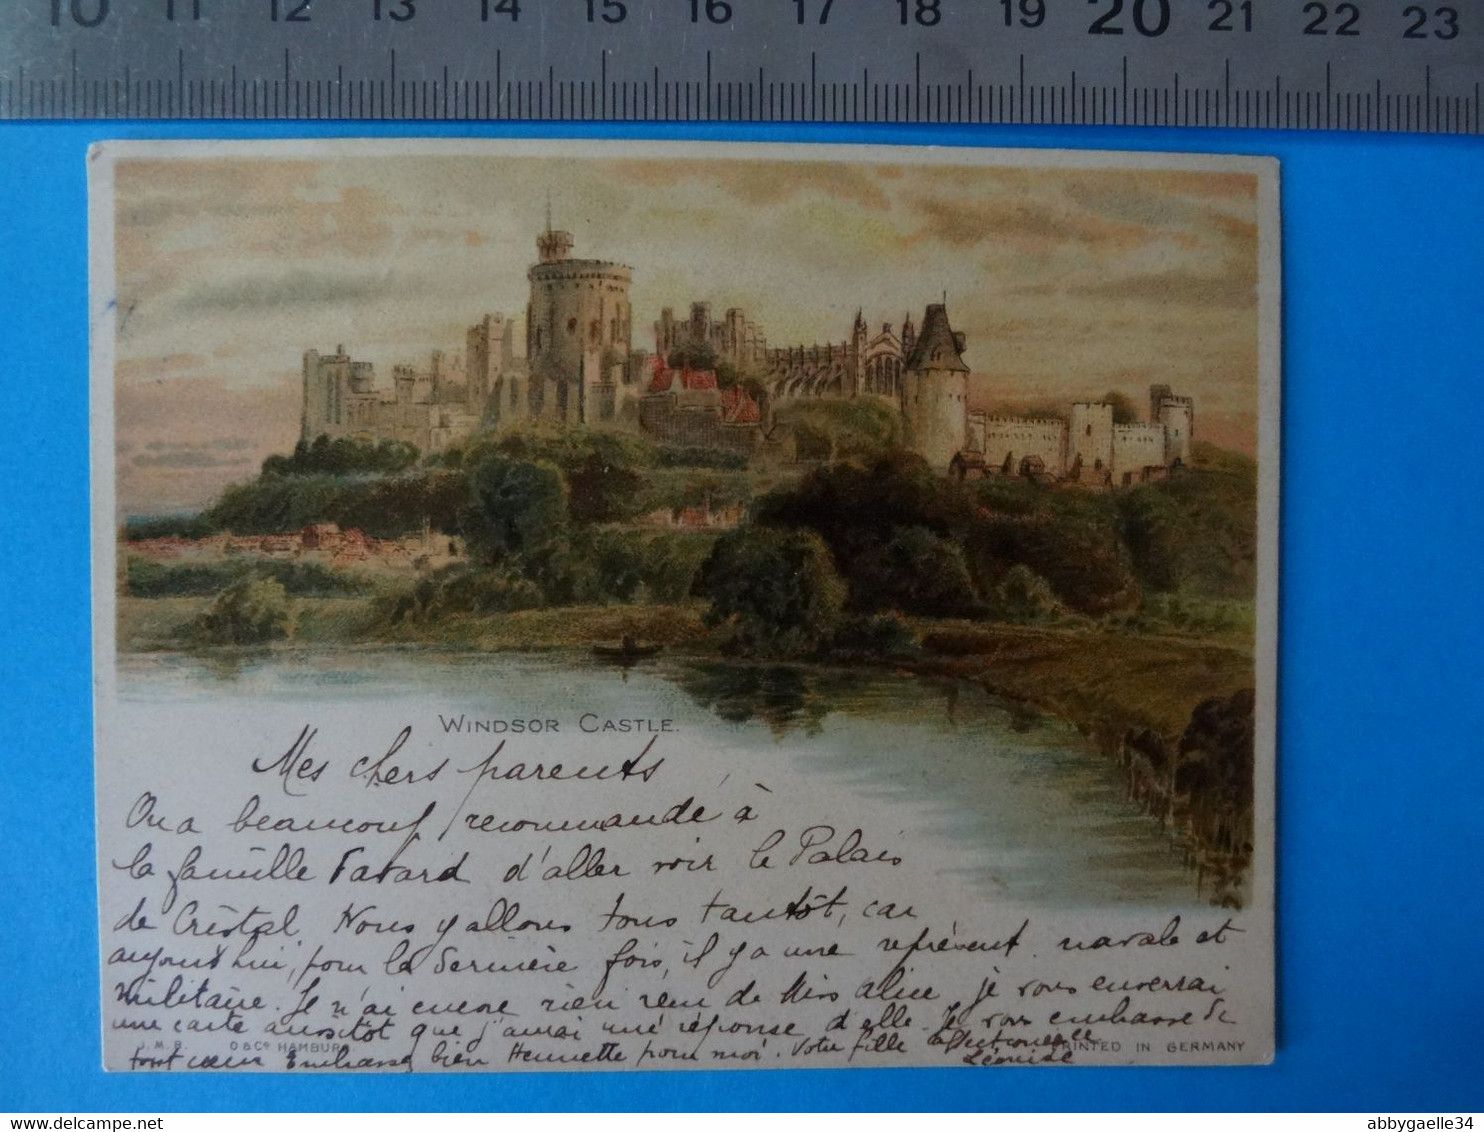 10 11 12 13 14 15 16 17 18 19 20 21 22 23
WINDSOR CASTLE.
Mes chers parents
On a beaucoup recommandé à
la famille Favard d'aller voir le Palais
de Cristal. Nous y allons tous tantôt, car
aujourd'hui, pour la dernière fois, il y a une représent. navale et
militaire. Je n'ai encore rien reçu de Miss Alice je vous enverrai
une carte aussitôt que j'aurai une réponse d'elle. Je vous embrasse de
J.M.B. O & Co HAMBURG
PRINTED IN GERMANY
tout cœur Embrassez bien Henriette pour moi. Votre fille affectionnée
Léonise
abbygaelle34